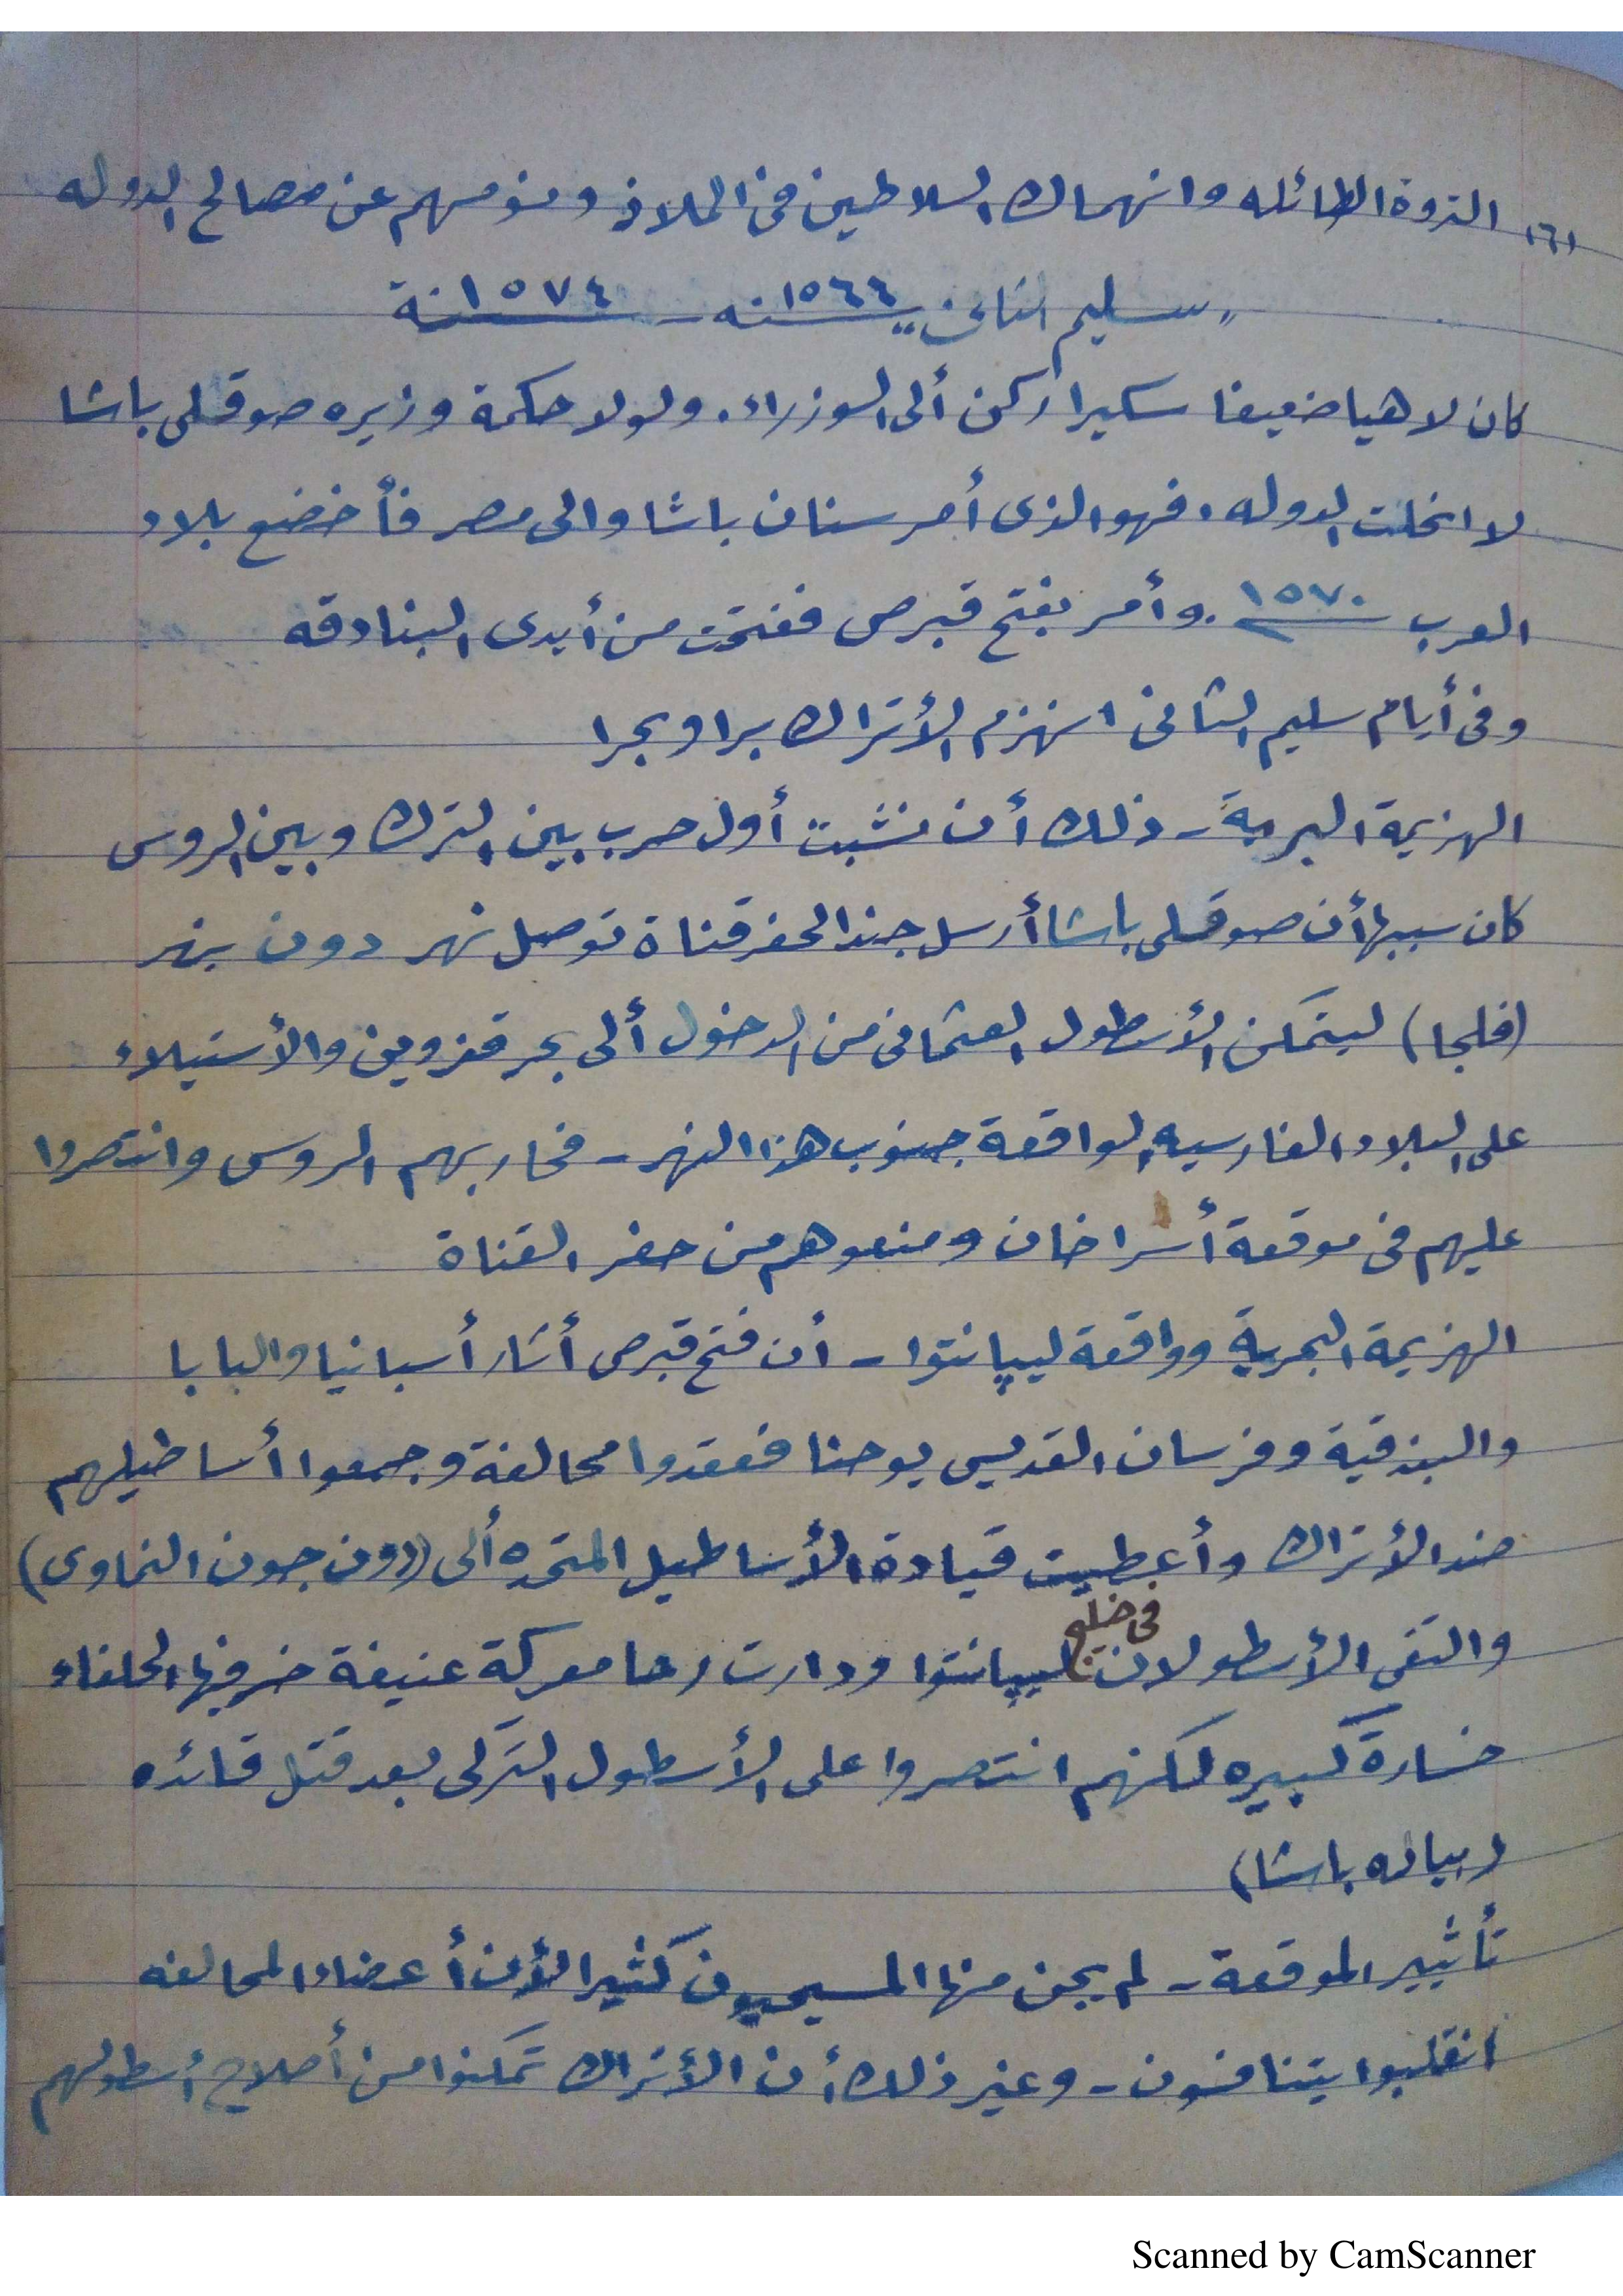 (٦) الثروة الطائله وانهماك السلاطين فى الملاذ ونومهم عن مصالح الدوله
"سليم الثانى" ١٥٦٦سنه - ١٥٧٤سنة
كان لاهيا ضعيفا سكيرا ركن ألى الوزراء. ولولا حكمة وزيره صوقللى باشا
لانحلت الدوله. فهو الذى أمر سنان باشا والى مصر فأخضع بلاد
العرب ١٥٧٠ وأمر بفتح قبرص ففتحت من أيدى البنادقه
وفى أيام سليم الثانى انهزم الأتراك برا وبحرا
الهزيمة البرية - ذلك أن نشبت أول حرب بين الترك وبين الروس
كان سببها أن صوقللى باشا أرسل جندا لحفر قناة توصل نهر دون بنهر
(فلجا) ليتمكن الأسطول العثمانى من الدخول ألى بحر قزوين والأستيلاء
على البلاد الفارسيه الواقعة جنوب هذا النهر - فحاربهم الروس وانتصروا
عليهم فى موقعة أسراخان ومنعوهم من حفر القناة
الهزيمة البحرية وواقعة ليپانتوا - أن فتح قبرص أثار أسبانيا والبابا
والبندقية وفرسان القديس يوحنا فعقدوا محالفة وجمعوا أساطيلهم
ضد الأتراك وأعطيت قيادة الأساطيل المتحده ألى (دون جون النمساوى)
والتقى الأسطولان فى خليج ليپانتوا ودارت رحا معركة عنيفة خسر فيها الحلفاء
خسارة كبيره لكنهم انتصروا على الأسطول التركى بعد قتل قائده
(بياله باشا)
تأثيير الموقعة - لم يجن منها المسيحيون كثيرا لأن أعضاء المحالفه
انقلبوا يتنافسون - وغير ذلك أن الأتراك تمكنوا من أصلاح أسطولهم
Scanned by CamScanner